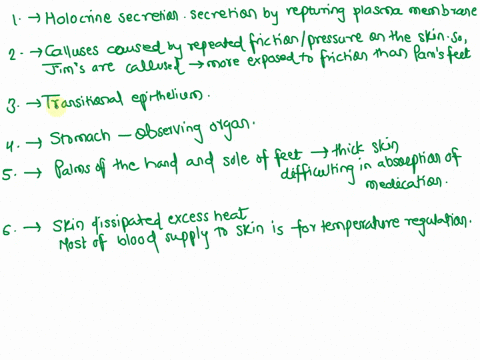 1. → Holocrine secretion. secretion by repturing plasma membrane
2. → Calluses caused by repeated friction/pressure on the skin. so,
Jim's are callused → more exposed to friction than Pam's feet
3. → Transitional epithelium.
4. → Stomach - observing organ.
5. → Palms of the hand and sole of feet → thick skin
difficulting in absoption of
medication.
6. → Skin dissipated excess heat
Most of blood supply to skin is for temperature regulation.